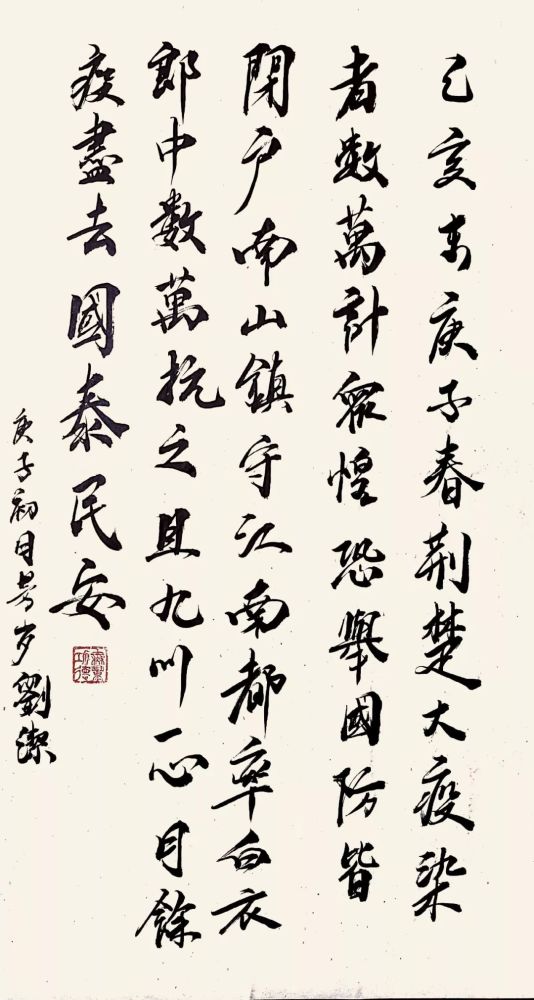 己亥末庚子春荆楚大疫染
者数萬計眾惶恐舉國防皆
閉户南山鎮守江南都率白衣
郎中數萬抗之且九州一心月餘
疫盡去國泰民安
庚子初月岁劉潔